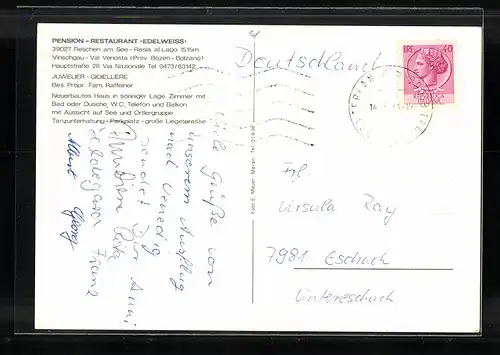 PENSION – RESTAURANT »EDELWEISS«
39027 Reschen am See – Resia al Lago 1515m.
Vinschgau - Val Venosta (Prov. Bozen - Bolzano)
Hauptstraße 28 Via Nazionale Tel 0473/63142
JUWELIER - GIOIELLIERE
Bes. Propr. Fam. Raffeiner
Neuerbautes Haus in sonniger Lage. Zimmer mit
Bad oder Dusche, W.C, Telefon und Balkon
mit Aussicht auf See und Ortlergruppe
Tanzunterhaltung - Parkplatz - große Liegeterrasse
Viele Grüße vom
unserem Ausflug
nach Venedig
sendet Dir Anni
Hildegard Franz
Albert Georg
Foto E. Mayer, Meran
Deutschland
40
Frl.
Ursula Ray
7981 Eschach
Untereschach